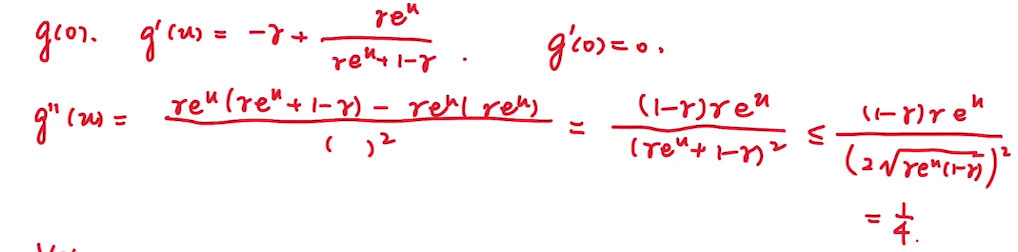 g(0). g'(u) = -γ + γe^u / (γe^u + 1-γ) . g'(0) = 0.
g''(u) = γe^u (γe^u + 1-γ) - γe^u (γe^u) / ( )^2 = (1-γ)γe^u / (γe^u + 1-γ)^2 ≤ (1-γ)γe^u / (2√γe^u(1-γ))^2
= 1/4.